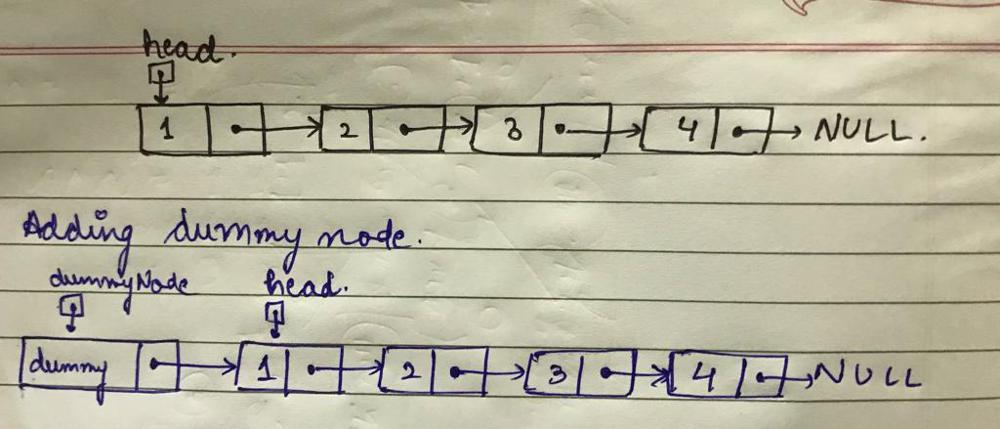 head.
1 2 3 4 NULL.
Adding dummy node.
dummyNode head.
dummy 1 2 3 4 NULL